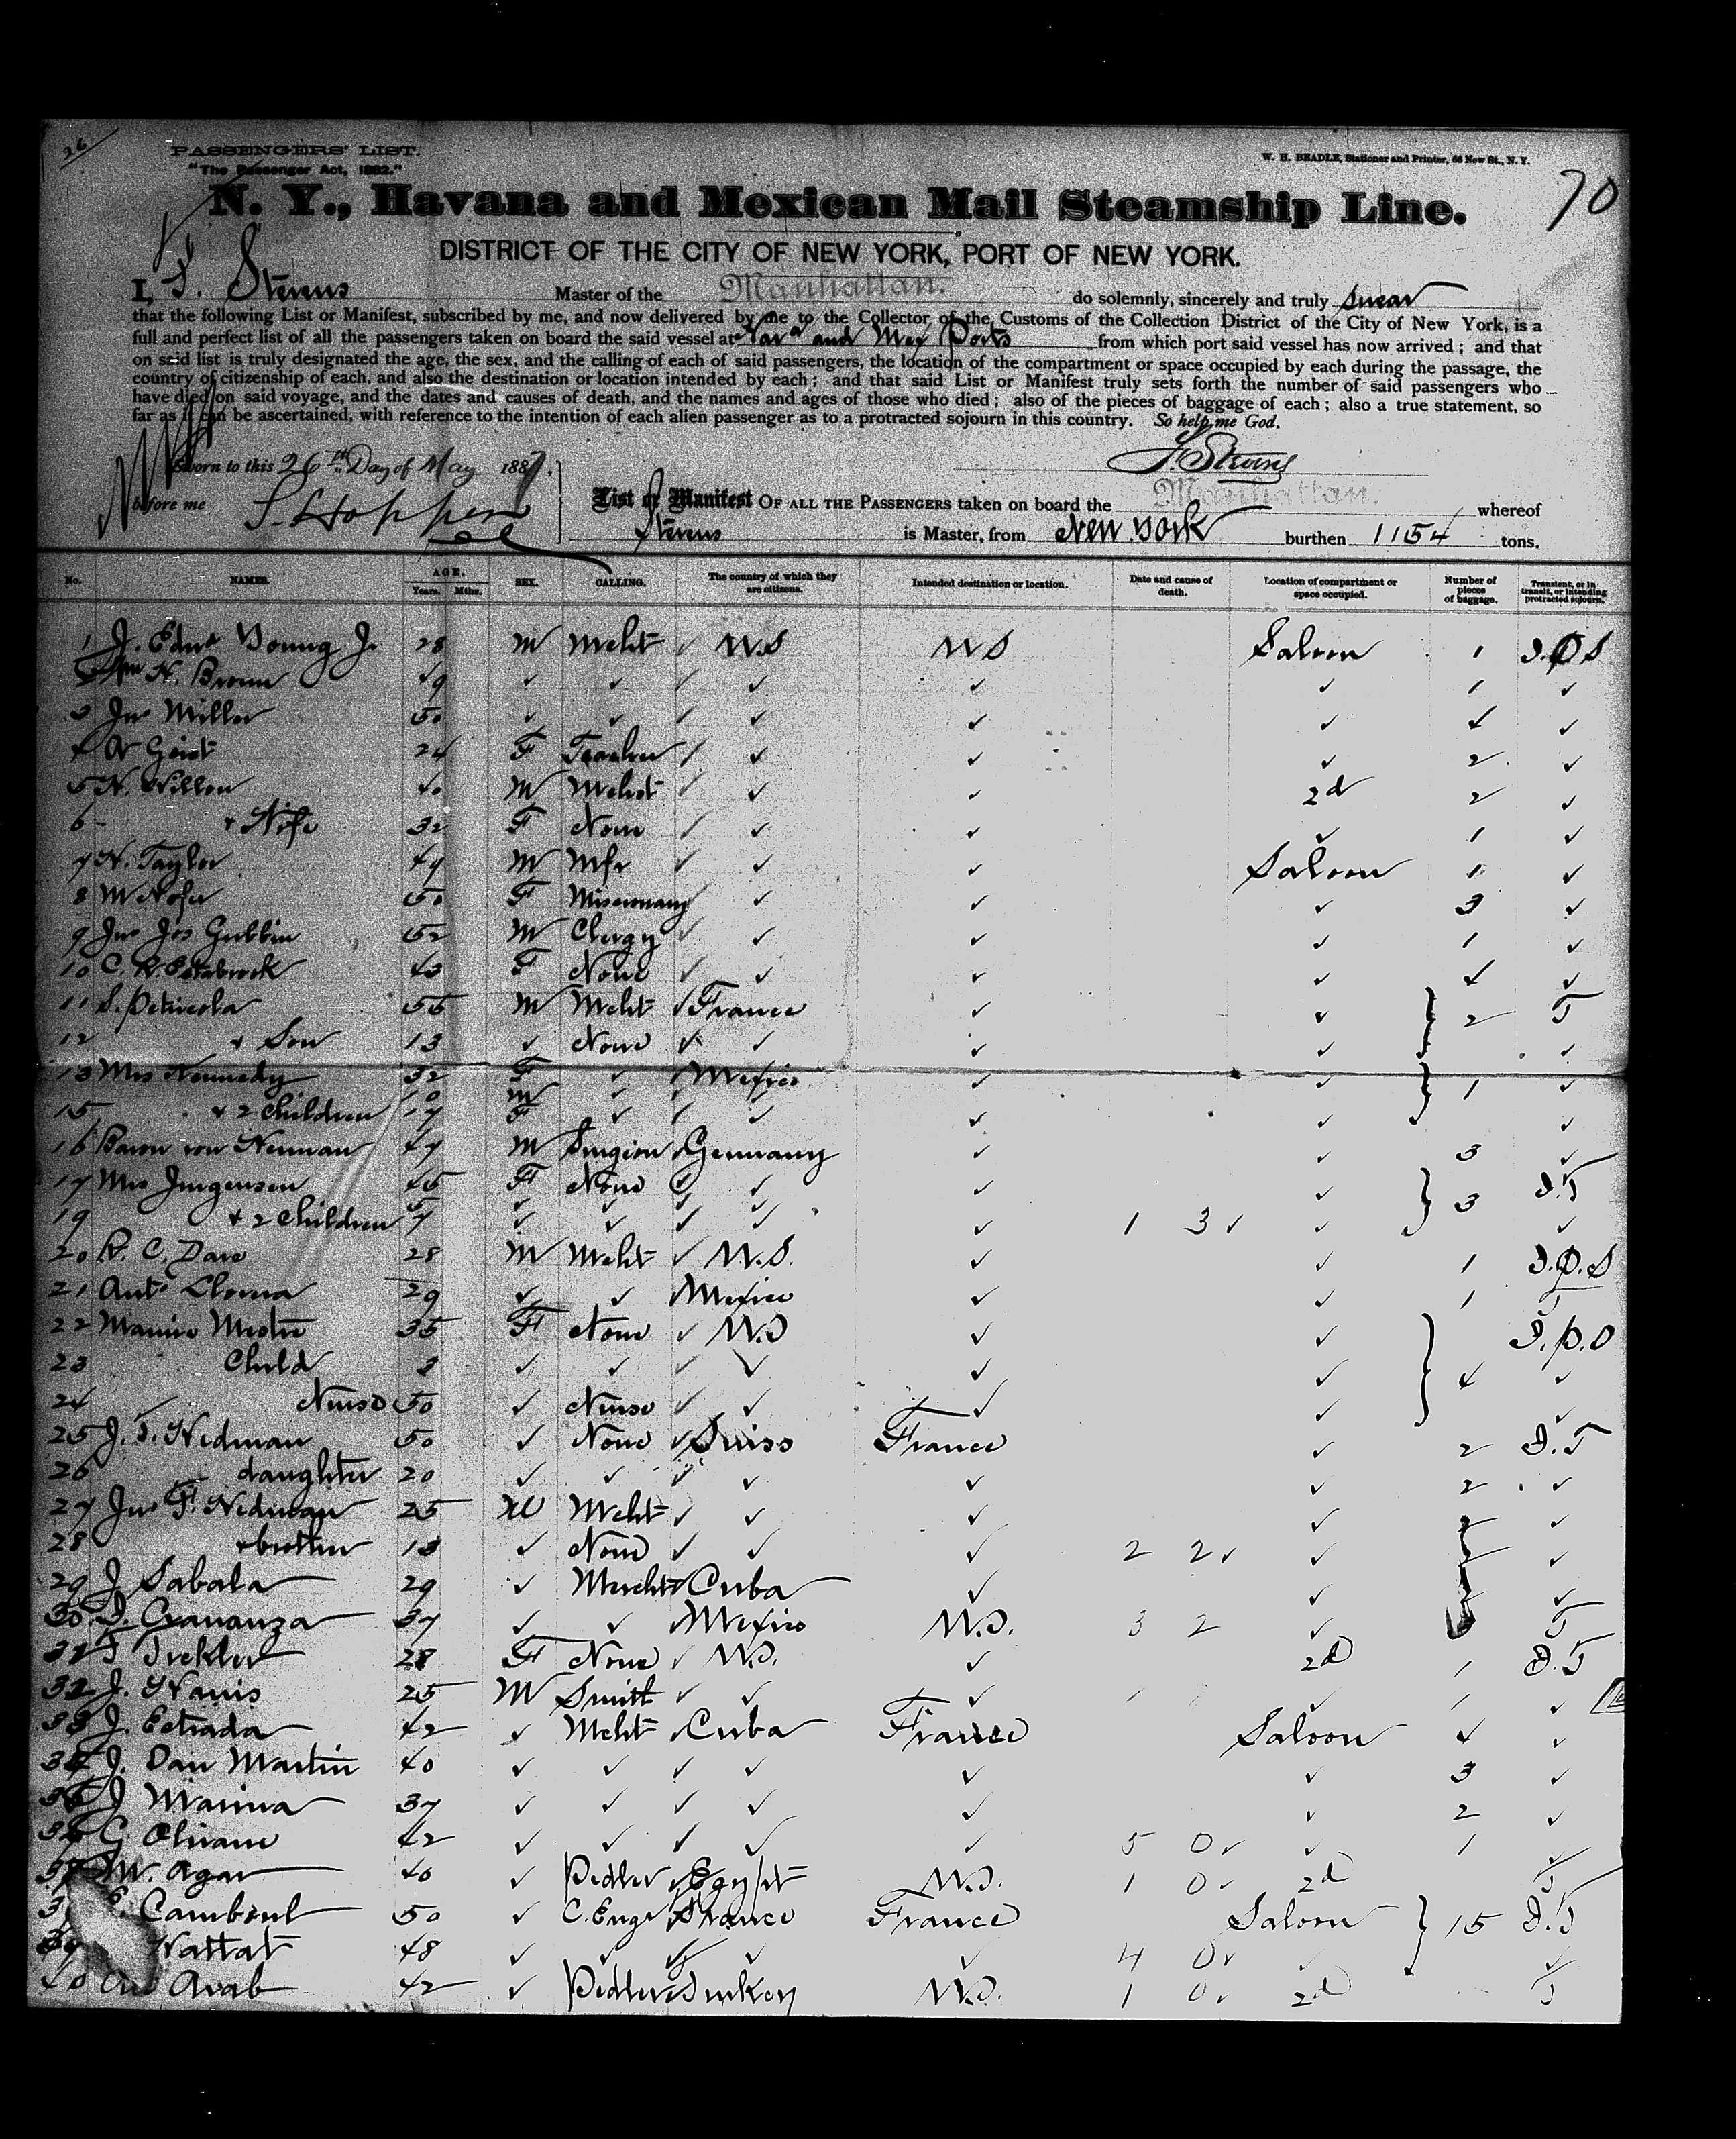 26
PASSENGERS' LIST.
"The Passenger Act, 1882."
W. H. BEADLE, Stationer and Printer, 66 New St., N. Y.
70
N. Y., Havana and Mexican Mail Steamship Line.
DISTRICT OF THE CITY OF NEW YORK, PORT OF NEW YORK.
I, F. Stevens Master of the Manhattan. do solemnly, sincerely and truly swear
that the following List or Manifest, subscribed by me, and now delivered by me to the Collector of the Customs of the Collection District of the City of New York, is a
full and perfect list of all the passengers taken on board the said vessel at Hava and Mex Ports from which port said vessel has now arrived; and that
on said list is truly designated the age, the sex, and the calling of each of said passengers, the location of the compartment or space occupied by each during the passage, the
country of citizenship of each, and also the destination or location intended by each; and that said List or Manifest truly sets forth the number of said passengers who
have died on said voyage, and the dates and causes of death, and the names and ages of those who died; also of the pieces of baggage of each; also a true statement, so
far as it can be ascertained, with reference to the intention of each alien passenger as to a protracted sojourn in this country. So help me God.
Sworn to this 26th Day of May 1887. F. Stevens
before me S. Hopper
List or Manifest OF ALL THE PASSENGERS taken on board the Manhattan. whereof
Stevens is Master, from New York burthen 1154 tons.
No. NAMES. AGE. Years. Mths. SEX. CALLING. The country of which they are citizens. Intended destination or location. Date and cause of death. Location of compartment or space occupied. Number of pieces of baggage. Transient, or in transit, or intending protracted sojourn.
1 J. Edwd Young Jr. 28 M Mcht ✓ U.S U S Saloon 1 I.P S
2 H. Brown 49 ✓ ✓ ✓ ✓ ✓ ✓ 1 ✓
3 Jno Miller 50 ✓ ✓ ✓ ✓ ✓ ✓ 4 ✓
4 A Geist 24 F Teacher ✓ ✓ ✓ ✓ 2 ✓
5 H. Willson 40 M Mchst ✓ ✓ ✓ 2d 2 ✓
6 + Wife 32 F None ✓ ✓ ✓ ✓ 1 ✓
7 H. Taylor 47 M Mfr ✓ ✓ ✓ Saloon 1 ✓
8 M 50 F Missionary ✓ ✓ ✓ 3 ✓
9 Jno Jos Gubbin 52 M Clergy ✓ ✓ ✓ ✓ 1 ✓
10 C. R. Estabrook 43 F None ✓ ✓ ✓ ✓ 4 ✓
11 S. 55 M Mcht ✓ France ✓ ✓ 2 T
12 + Son 13 ✓ None ✓ ✓ ✓ ✓ ✓
13 Mrs Kennedy 32 F ✓ ✓ Mexico ✓ ✓ 1 ✓
10 M ✓ ✓ ✓
15 + 2 Children 17 F ✓ ✓ ✓ ✓ ✓ ✓
16 Baron von Neuman 47 M Surgeon Germany ✓ ✓ 3 ✓
17 Mrs Jurgensen 45 F None ✓ ✓ ✓ ✓ 3 I.T
19 + 2 Children 7 ✓ ✓ ✓ ✓ ✓ 1 3 ✓ ✓ ✓
20 R. C. Dare 28 M Mcht ✓ U.S. ✓ ✓ 1 I.P.S
21 Anto Llorca 29 ✓ ✓ Mexico ✓ ✓ 1 T
22 35 F None ✓ U.S ✓ ✓ I.P.S
23 Child 2 ✓ ✓ ✓ ✓ ✓ ✓ 4 ✓
24 Nurse 50 ✓ Nurse ✓ ✓ ✓ ✓ ✓
25 J. F. Widman 50 ✓ None ✓ Swiss France ✓ 2 I.T
26 daughter 20 ✓ ✓ ✓ ✓ ✓ ✓ 2 ✓
27 Jno F. Widman 25 M Mcht ✓ ✓ ✓ ✓ 2 ✓
28 + brother 13 ✓ None ✓ ✓ ✓ 2 2 ✓ ✓ 2 ✓
29 J Sabala 29 ✓ Mercht Cuba ✓ ✓ ✓
30 37 ✓ ✓ Mexico U.S. 3 2 ✓ T
31 28 F None ✓ U.S. ✓ 2d 1 I.T
32 J. 25 M Smith ✓ ✓ ✓ ✓ 1 ✓
33 J. Estrada 42 ✓ Mcht ✓ Cuba France Saloon 4 ✓
34 J. Dan Martin 40 ✓ ✓ ✓ ✓ ✓ ✓ 3 ✓
35 J 37 ✓ ✓ ✓ ✓ ✓ ✓ 2 ✓
36 G 42 ✓ ✓ ✓ ✓ ✓ 5 0 ✓ ✓ 1 ✓
37 M. Agar 40 ✓ Pedler Egypt U.S. 1 0 ✓ 2d T
50 ✓ C. Engr France France Saloon 15 I.T
39 48 ✓ ✓ ✓ ✓ ✓ 4 0 ✓ ✓ ✓
40 Arab 42 ✓ Pedler Turkey U.S. 1 0 ✓ 2d T